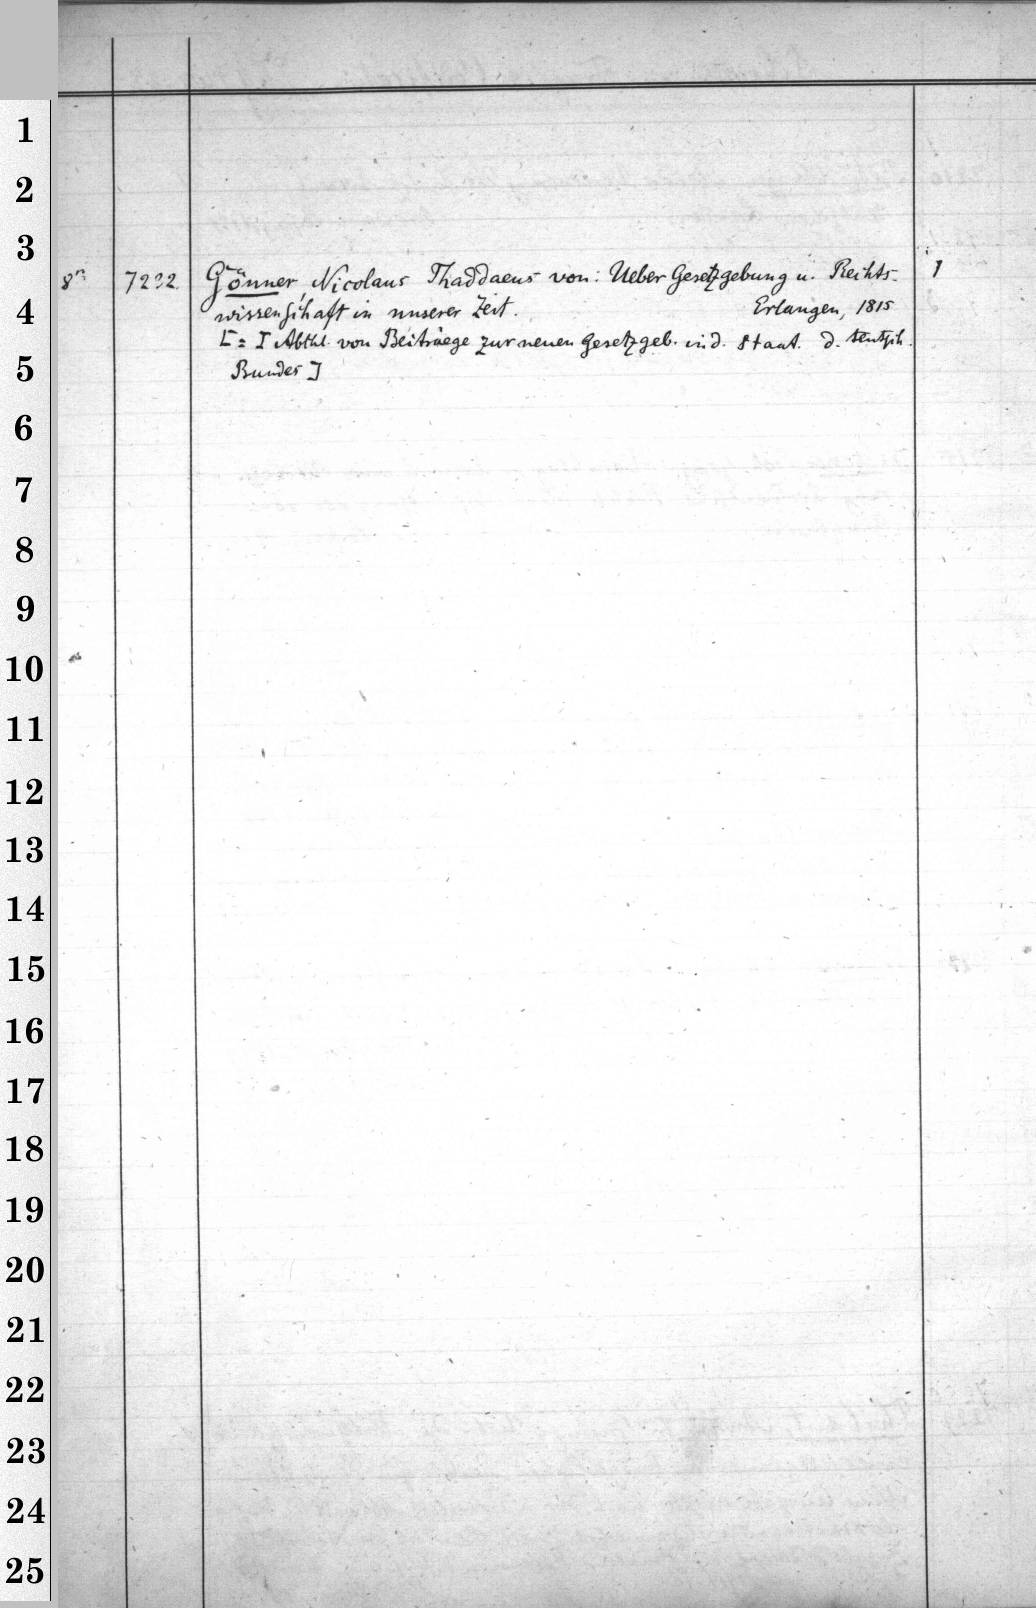 1
2
3
8º 7232. Gönner, Nicolaus Thaddaeus von: Ueber Gesetzgebung u. Rechts- 1
4
wissenschaft in unserer Zeit. Erlangen, 1815
[= I Abthl. von Beiträege zur neuen Gesetzgeb. in d. Staat. d. teutsch.
5
Bundes]
6
7
8
9
10
11
12
13
14
15
16
17
18
19
20
21
22
23
24
25